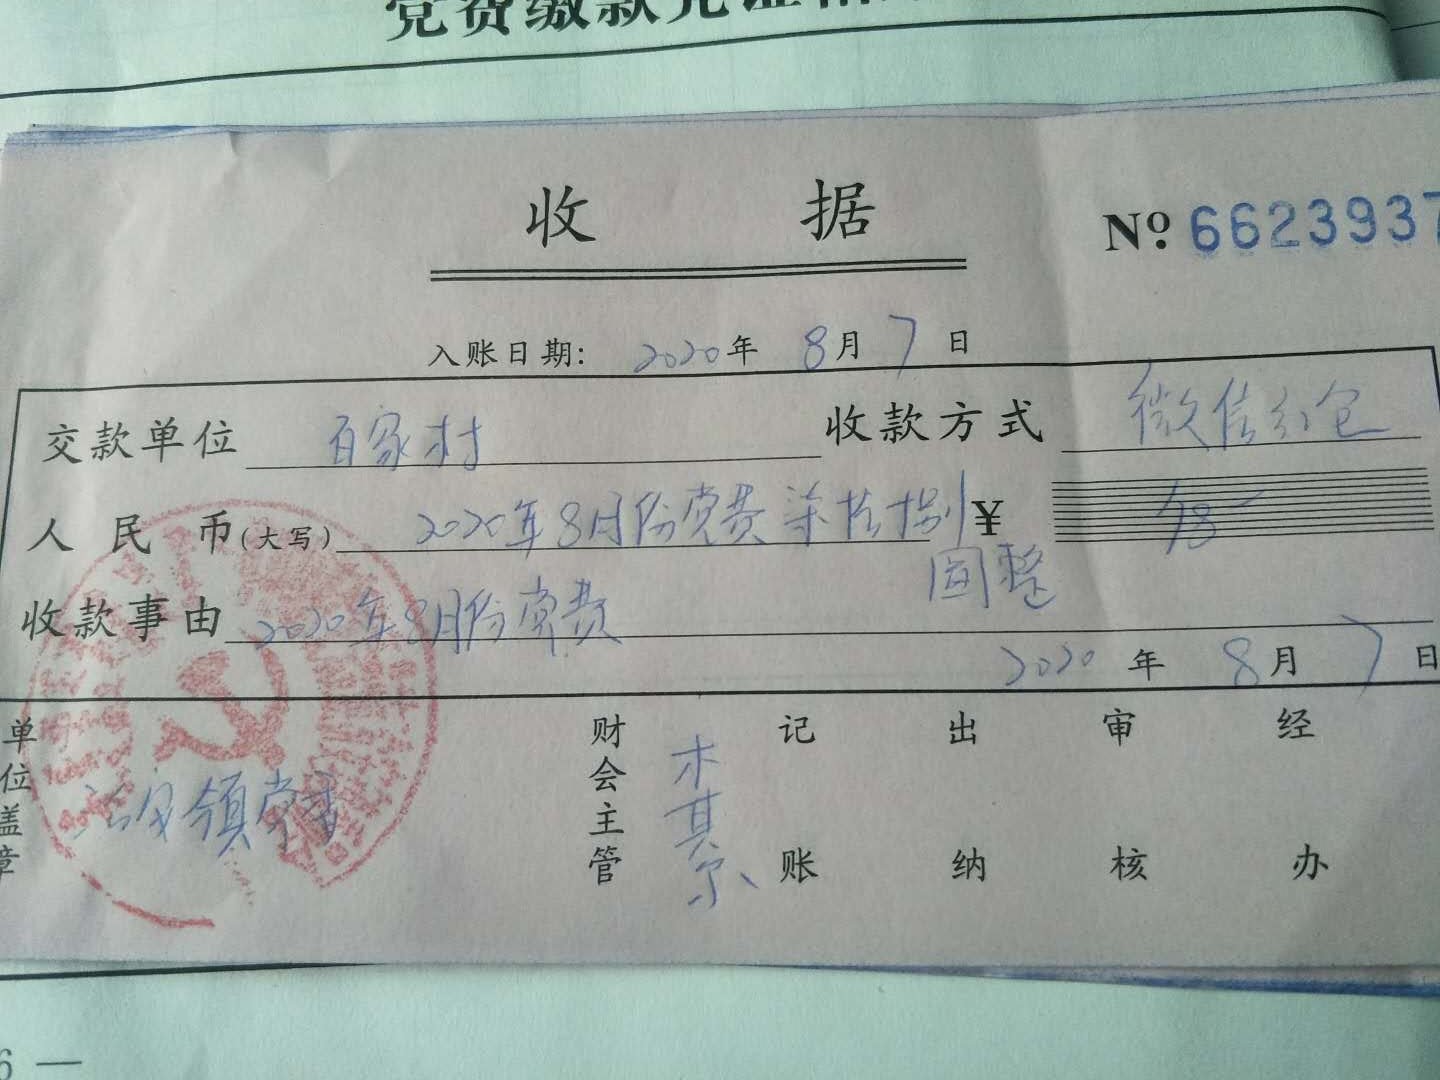 党费缴款凭证
收 据
№ 6623937
入账日期: 2020年 8月 7日
交款单位 百家村 收款方式 微信红包
人民币(大写) 2020年8月份党费 柒拾捌 ¥ 78
圆整
收款事由 2020年8月份党费
2020 年 8月 7日
单位盖章 财会主管 记账 出纳 审核 经办
6 —